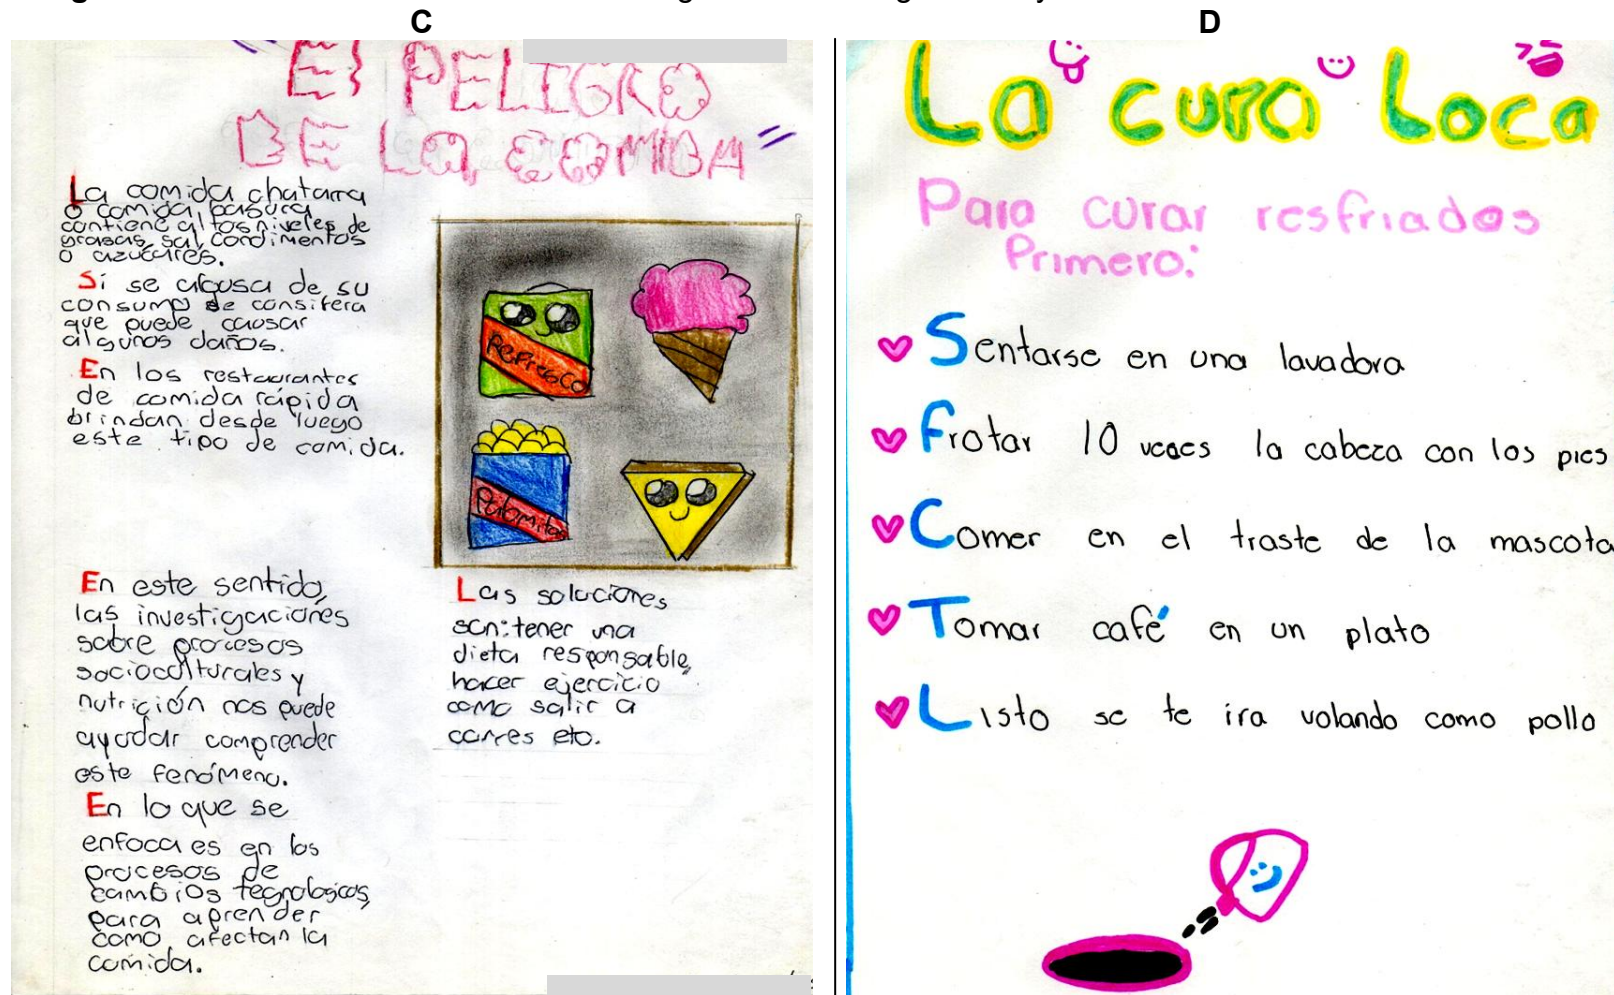 C
El PELIGRO
DE LA COMIDA
La comida chatarra
o comida basura
contiene altos niveles de
grasas, sal, condimentos
o azúcares.
Si se abusa de su
consumo se consifera
que puede causar
algunos daños.
En los restaurantes
de comida rápida
brindan desde luego
este tipo de comida.
Refresco
Palomitas
En este sentido,
las investigaciones
sobre procesos
socioculturales y
nutrición nos puede
ayudar comprender
este fenómeno.
En lo que se
enfoca es en los
procesos de
cambios tegnologicos,
para aprender
como afectan la
comida.
Las soluciones
son: tener una
dieta responsable,
hacer ejercicio
como salir a
correr etc.
D
La cura Loca
Para curar resfriados
Primero:
Sentarse en una lavadora
Frotar 10 veces la cabeza con los pies
Comer en el traste de la mascota
Tomar café en un plato
Listo se te ira volando como pollo